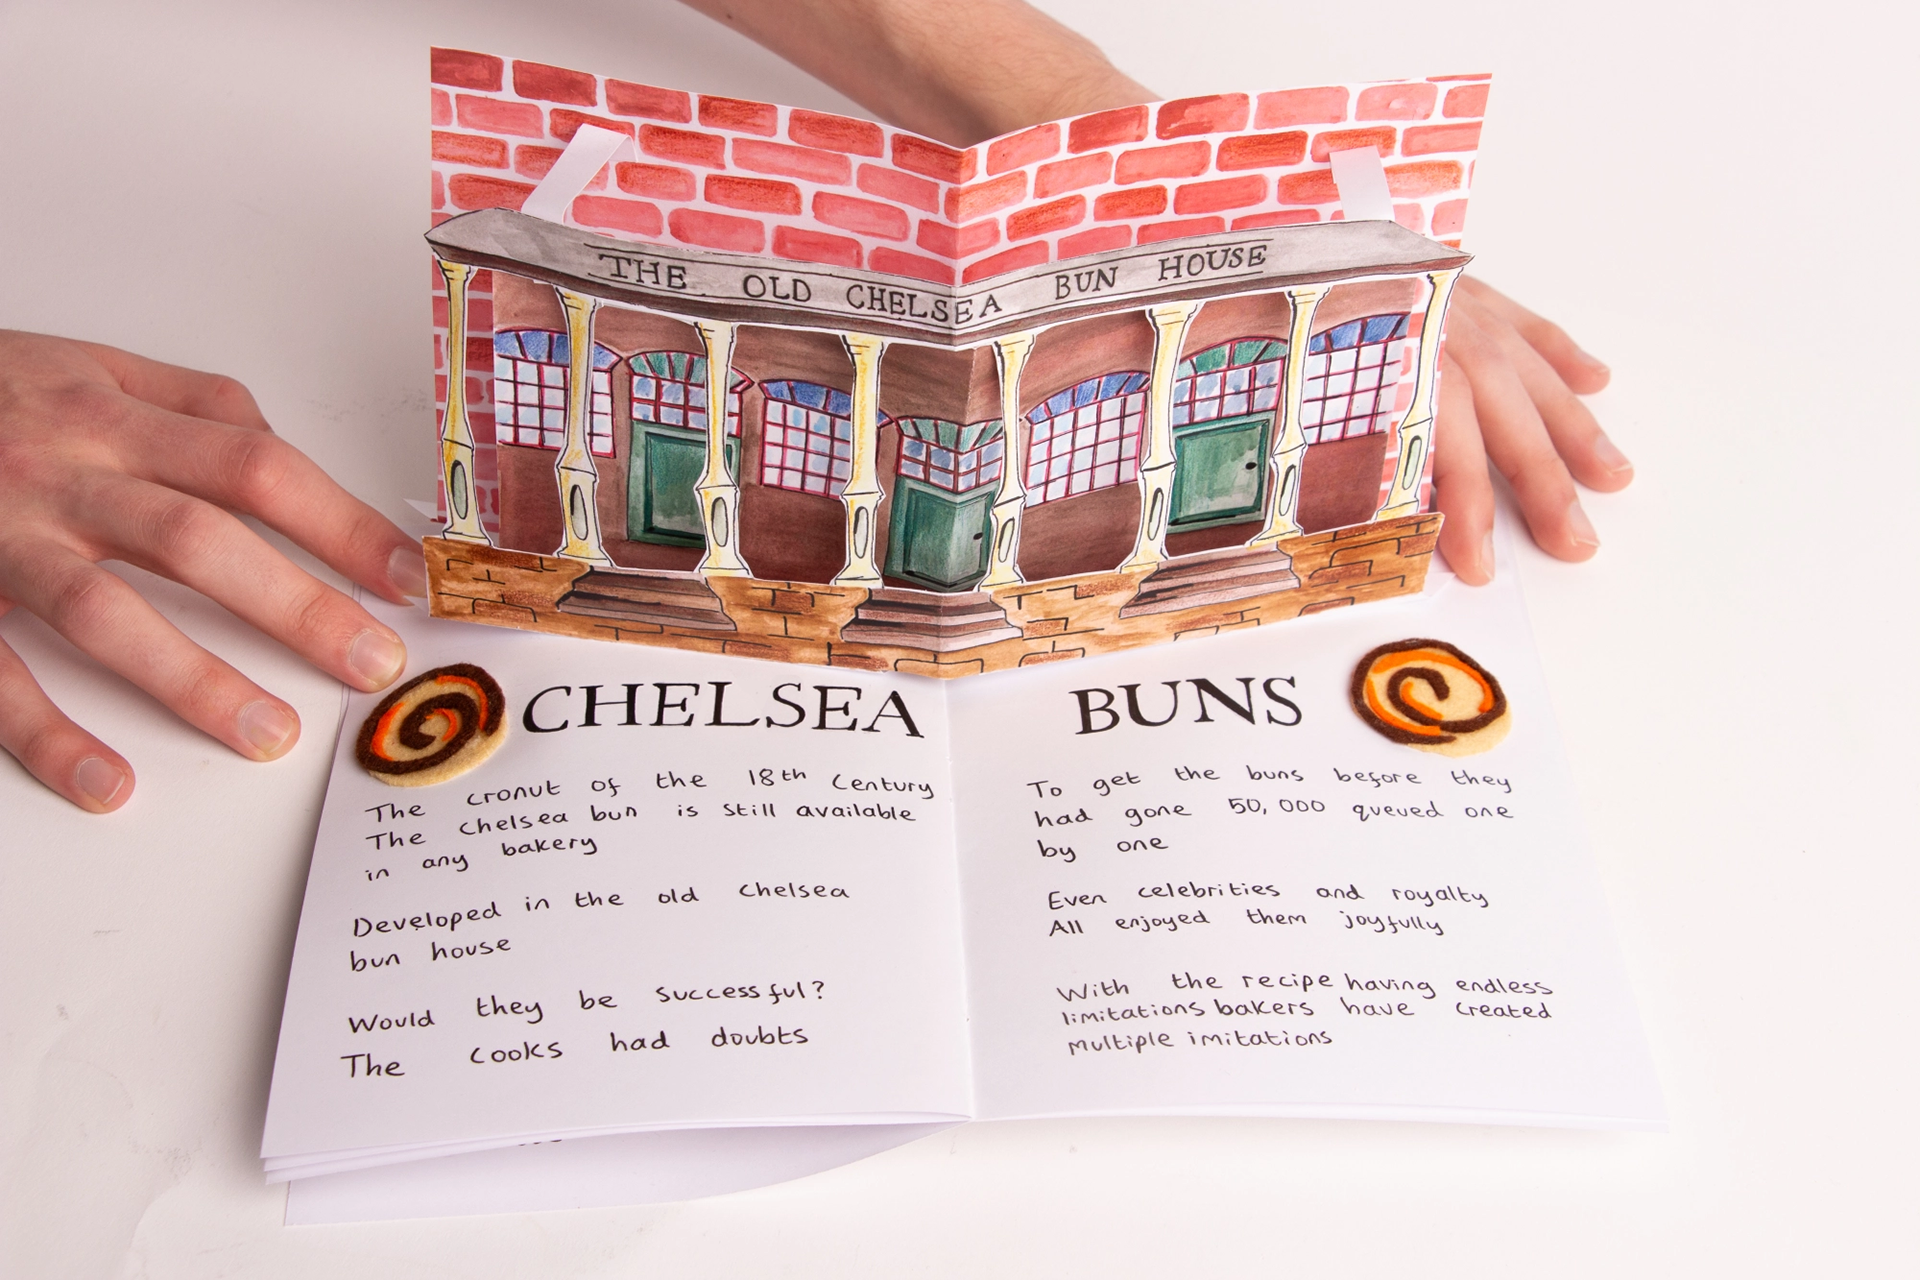 THE OLD CHELSEA BUN HOUSE
CHELSEA BUNS
The cronut of the 18th Century
The chelsea bun is still available
in any bakery
Developed in the old chelsea
bun house
Would they be successful?
The cooks had doubts
To get the buns before they
had gone 50,000 queued one
by one
Even celebrities and royalty
All enjoyed them joyfully
With the recipe having endless
limitations bakers have created
multiple imitations